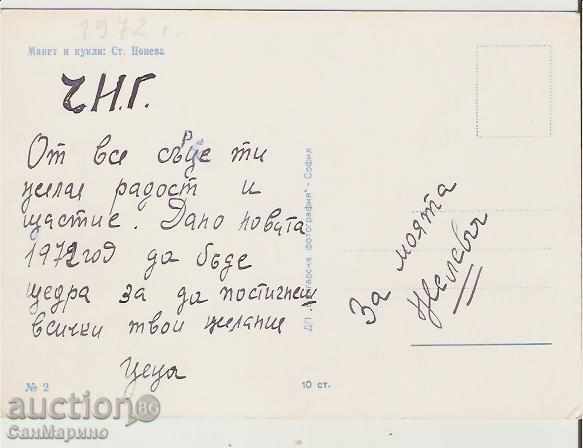 1972 г.
Макет и кукли: Ст. Цонева
ЧН.Г.
От все сърце ти
желая радост и
щастие. Дано новата
1972 год да бъде
щедра за да постигнеш
всички твои желание
Цеца
№ 2
10 ст.
фотография" - София
За моята
auction BG
СанМарино